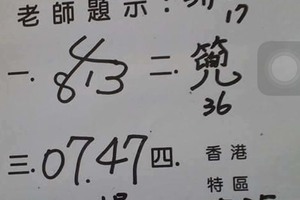 老師題示:
17
一. 4 二.
813
36
三.07.47 四. 香港
特區